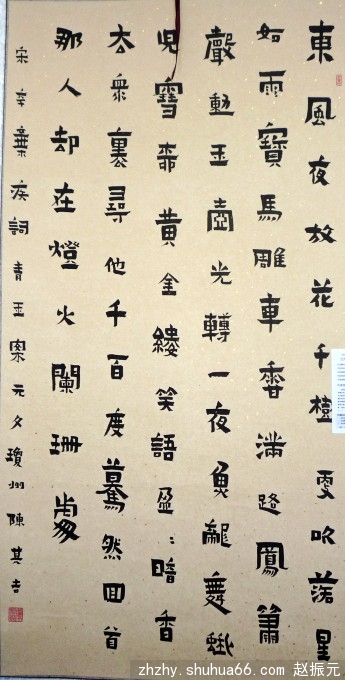 東風夜放花千樹更吹落星
如雨寶馬雕車香滿路鳳簫
聲動玉壺光轉一夜魚龍舞蛾
兒雪柳黃金縷笑語盈〻暗香
去衆裏尋他千百度驀然回首
那人却在燈火闌珊處
宋辛棄疾詞青玉案元夕瓊州陳其吉
zhzhy.shuhua66.com 赵振元